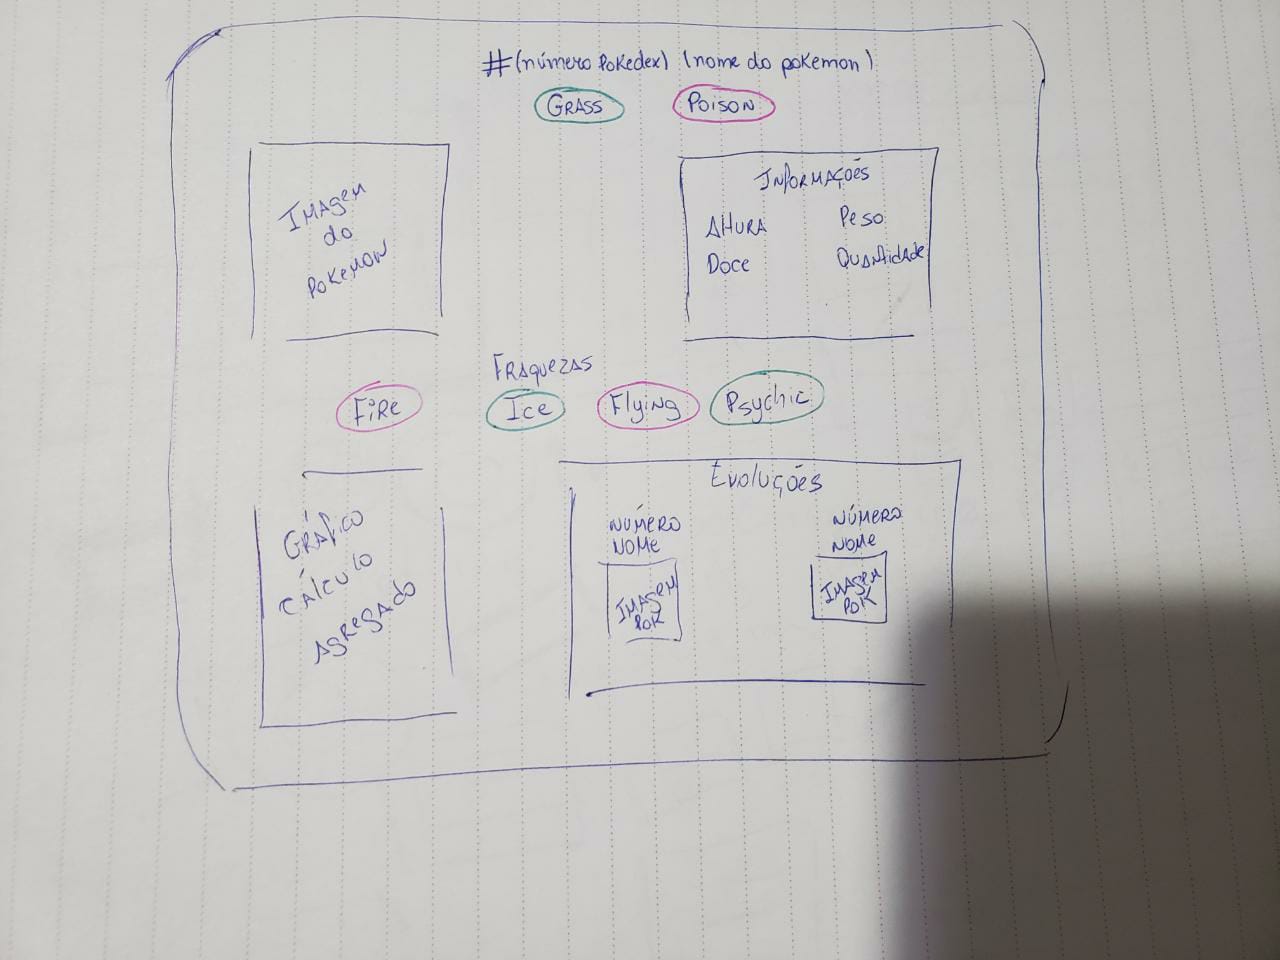 #(número Pokedex) (nome do pokemon)
GRASS
POISON
IMAgem
do
PoKeMON
INfORMAÇÕES
AltURA
Peso
Doce
QUANtidAde
FRAQUEZAS
FiRe
Ice
FlyiNg
Psychic
GRÁfico
CÁlculo
AgRegAdo
Evoluções
NÚMERO
NOMe
IMAgeM
PoK
NÚMERO
NOMe
IMAgeM
PoK